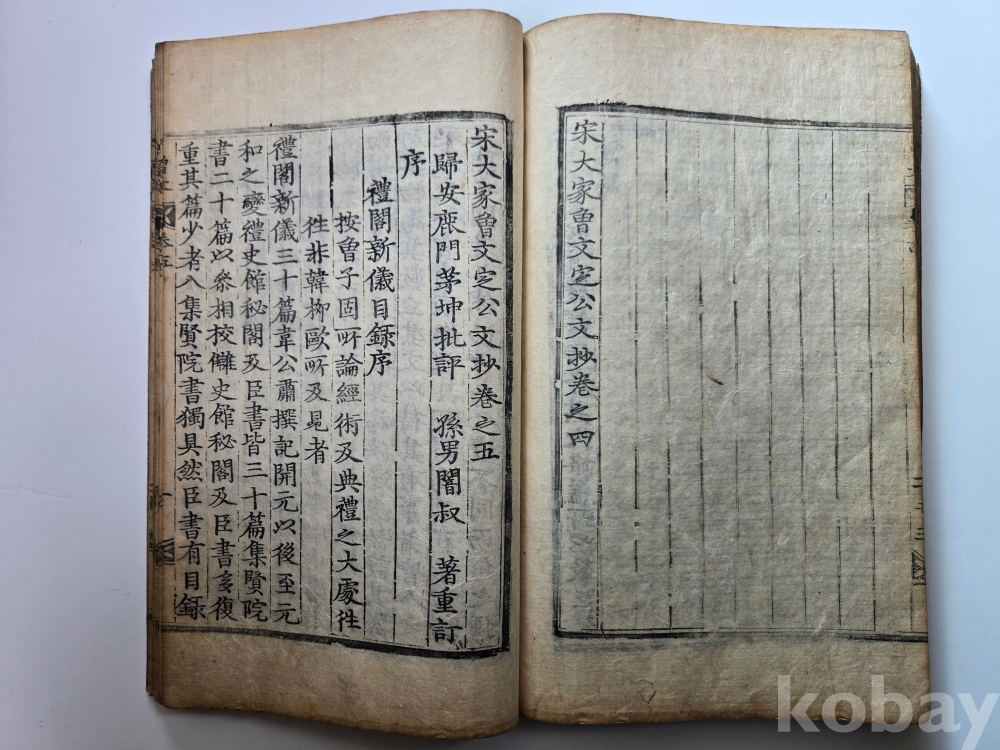 宋大家曾文定公文抄卷之四
宋大家曾文定公文抄卷之五
歸安鹿門茅坤批評 孫男闇叔 著重訂
序
禮閣新儀目録序
按曾子固所論經術及典禮之大處徃
徃非韓柳歐所及見者
禮閣新儀三十篇韋公肅撰記開元以後至元
和之變禮史館秘閣及臣書皆三十篇集賢院
書二十篇以叅相校讎史館秘閣及臣書多復
重其篇少者八集賢院書獨具然臣書有目録
kobay